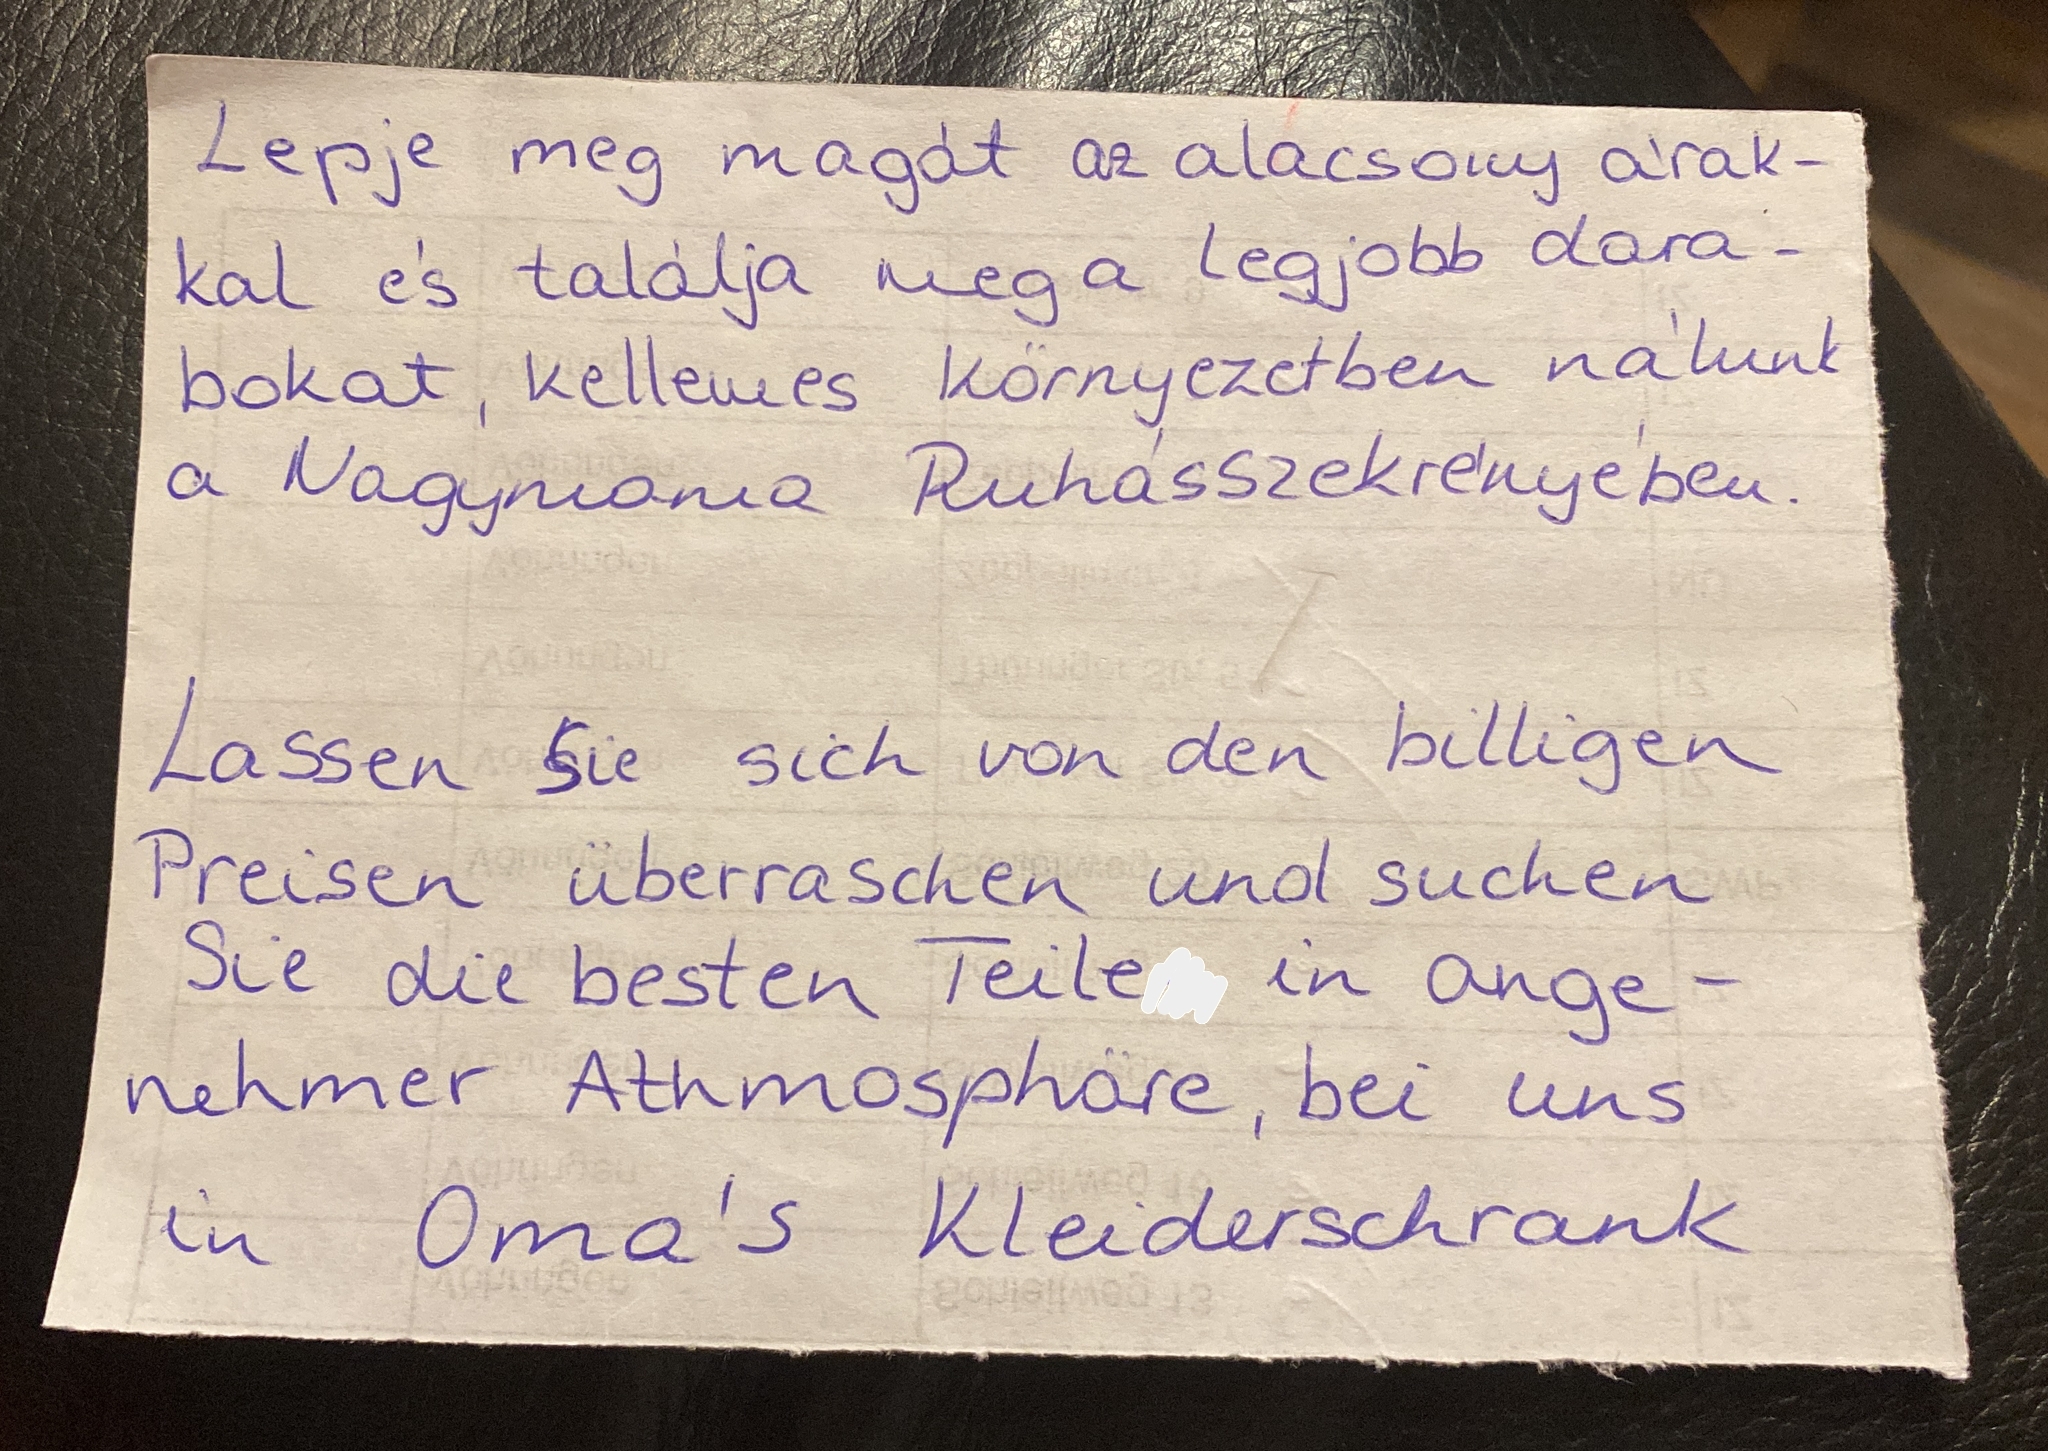 Lepje meg magát az alacsony árak-
kal és találja meg a legjobb dara-
bokat, kellemes környezetben nálunk
a Nagymama Ruhásszekrényében.
Lassen Sie sich von den billigen
Preisen überraschen und suchen
Sie die besten Teile in ange-
nehmer Athmosphäre, bei uns
in Oma's Kleiderschrank